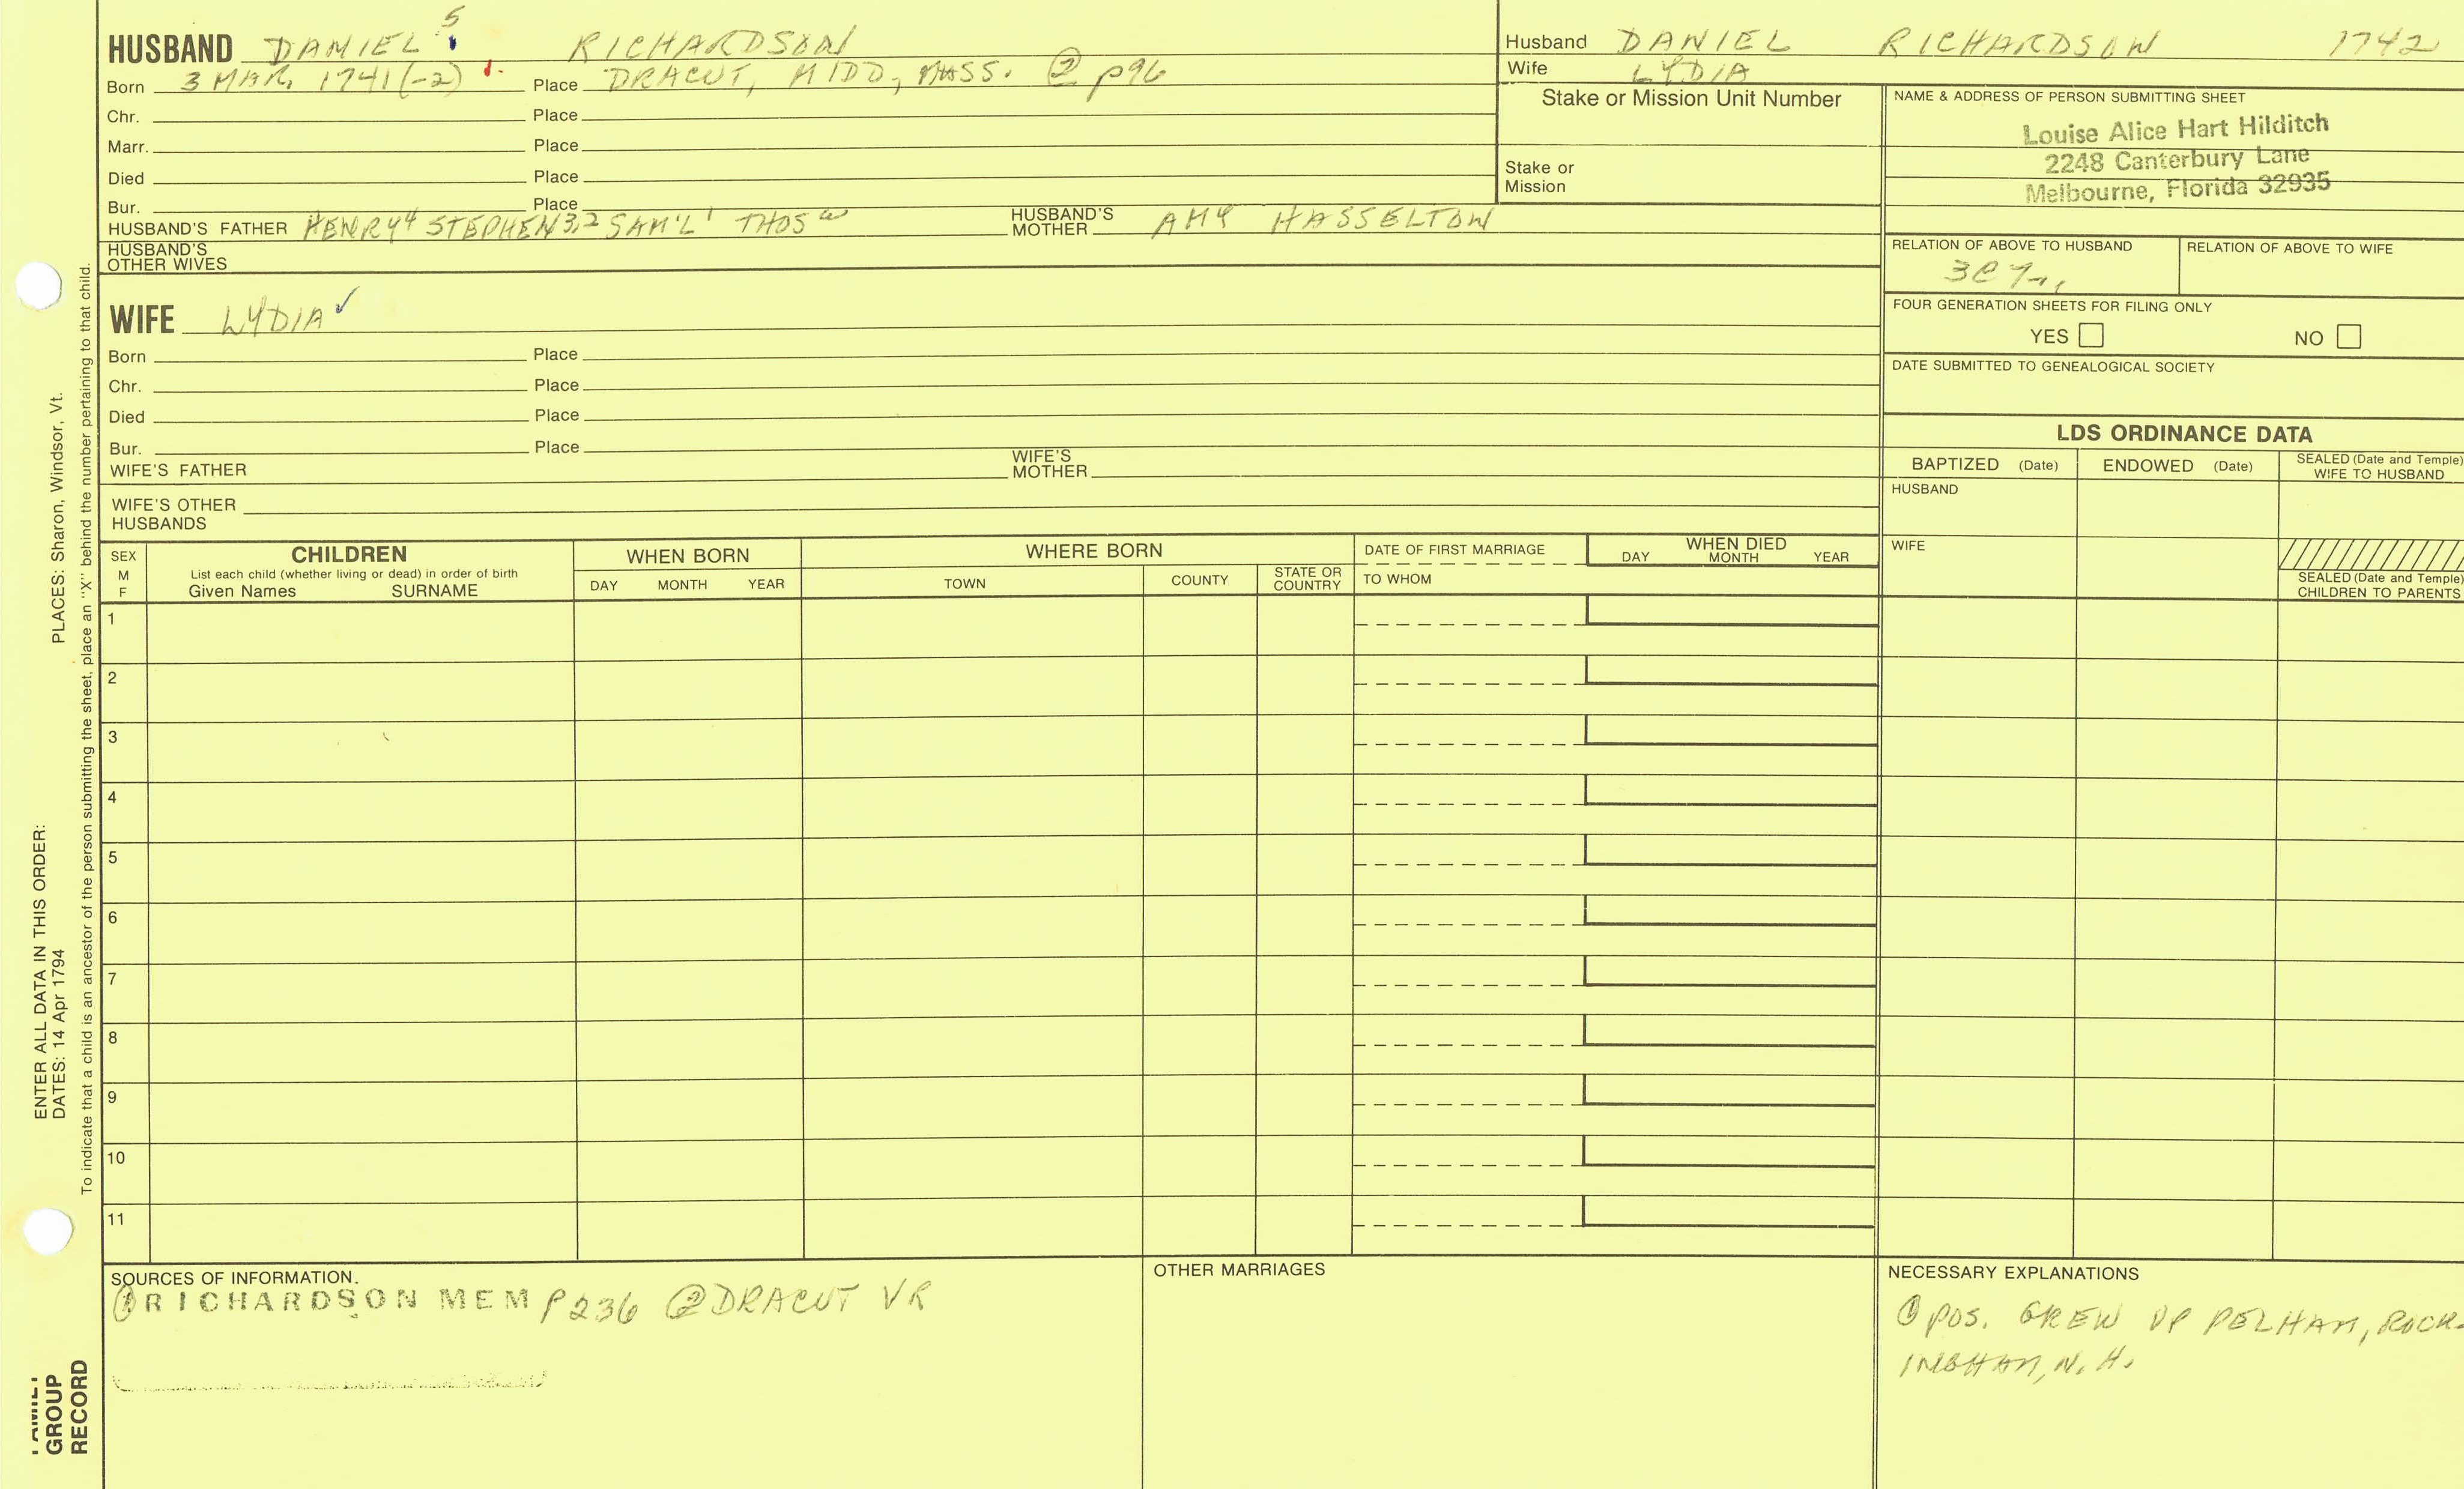 HUSBAND DANIEL 5 RICHARDSON
Born 3 MAR. 1741(-2) Place DRACUT, MIDD, MASS. ② p96
Chr. Place
Marr. Place
Died Place
Bur. Place
HUSBAND'S FATHER HENRY4 STEPHEN3,2 SAM'L1 THOS HUSBAND'S MOTHER AMY HASSELTON
HUSBAND'S
OTHER WIVES
WIFE LYDIA ✓
Born Place
Chr. Place
Died Place
Bur. Place
WIFE'S FATHER WIFE'S MOTHER
WIFE'S OTHER
HUSBANDS
Husband DANIEL RICHARDSON 1742
Wife LYDIA
Stake or Mission Unit Number
Stake or
Mission
NAME & ADDRESS OF PERSON SUBMITTING SHEET
Louise Alice Hart Hilditch
2248 Canterbury Lane
Melbourne, Florida 32935
RELATION OF ABOVE TO HUSBAND RELATION OF ABOVE TO WIFE
FOUR GENERATION SHEETS FOR FILING ONLY
YES NO
DATE SUBMITTED TO GENEALOGICAL SOCIETY
LDS ORDINANCE DATA
BAPTIZED (Date) ENDOWED (Date) SEALED (Date and Temple)
WIFE TO HUSBAND
HUSBAND
WIFE
SEALED (Date and Temple)
CHILDREN TO PARENTS
SEX
M
F
CHILDREN
List each child (whether living or dead) in order of birth
Given Names SURNAME
WHEN BORN
DAY MONTH YEAR
WHERE BORN
TOWN COUNTY STATE OR COUNTRY
DATE OF FIRST MARRIAGE
TO WHOM
WHEN DIED
DAY MONTH YEAR
1
2
3
4
5
6
7
8
9
10
11
SOURCES OF INFORMATION.
① RICHARDSON MEM P236 ② DRACUT VR
OTHER MARRIAGES
NECESSARY EXPLANATIONS
① POS. GREW UP PELHAM, ROCK-
INGHAM, N.H.
ENTER ALL DATA IN THIS ORDER:
DATES: 14 Apr 1794 PLACES: Sharon, Windsor, Vt.
To indicate that a child is an ancestor of the person submitting the sheet, place an "X" behind the number pertaining to that child.
FAMILY
GROUP
RECORD